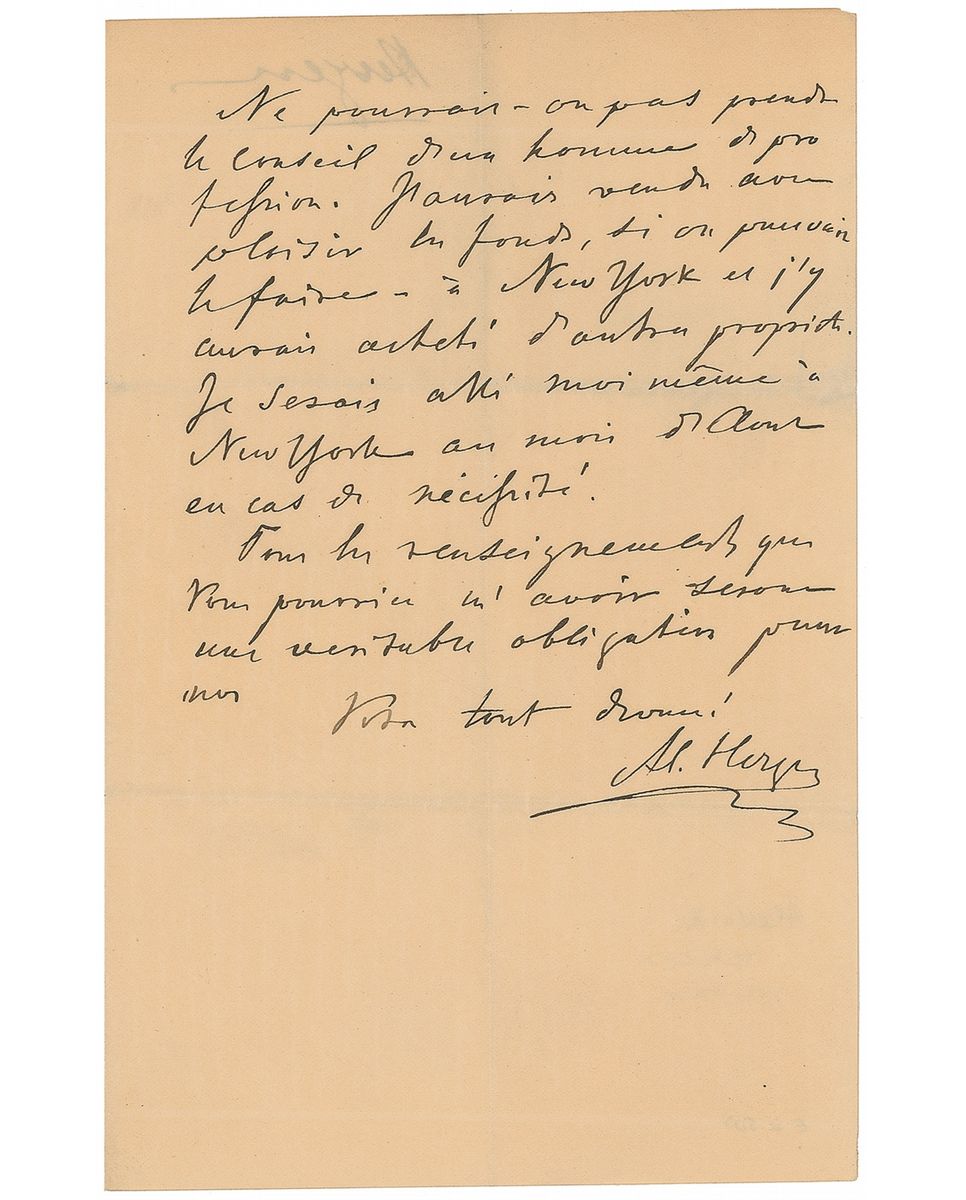 Ne pourrait-on pas prendre
le conseil d'un homme de pro
fession. J'aurais vendu avec
plaisir les fonds, si on pouvait
le faire - à New York et j'y
aurais acheté d'autres propriétés.
Je serais allé moi même à
New York au mois d'Aout
en cas de nécessité.
Tous les renseignements que
Vous pourriez m'avoir seront
une veritable obligation pour
moi
Votre tout devoué
Al. Herzen